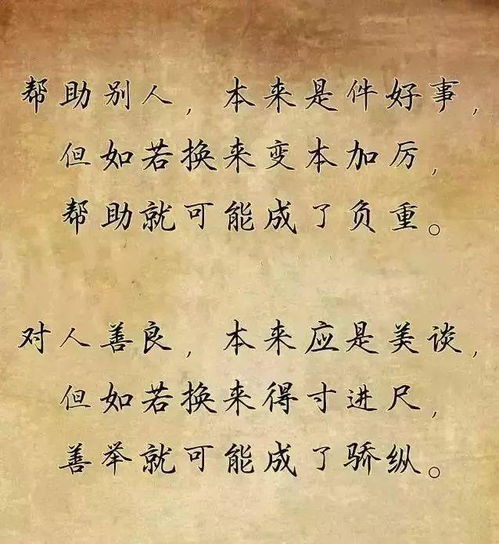 帮助别人，本来是件好事，
但如若换来变本加厉，
帮助就可能成了负重。
对人善良，本来应是美谈，
但如若换来得寸进尺，
善举就可能成了骄纵。